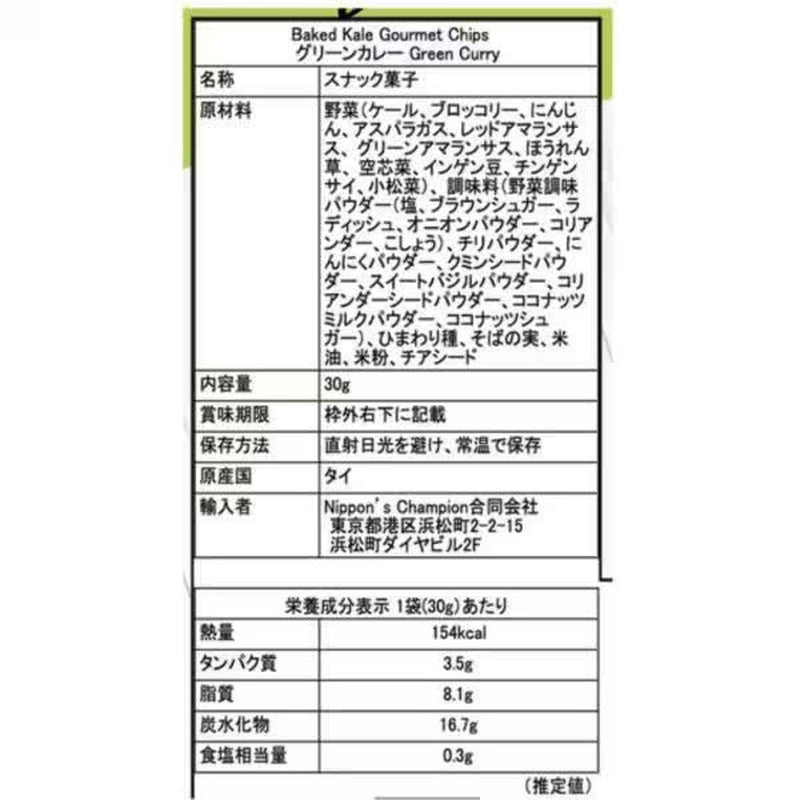 Baked Kale Gourmet Chips
グリーンカレー Green Curry
名称 スナック菓子
原材料 野菜(ケール、ブロッコリー、にんじ
ん、アスパラガス、レッドアマランサ
ス、グリーンアマランサス、ほうれん
草、空芯菜、インゲン豆、チンゲン
サイ、小松菜)、調味料(野菜調味
パウダー(塩、ブラウンシュガー、ラ
ディッシュ、オニオンパウダー、コリア
ンダー、こしょう)、チリパウダー、に
んにくパウダー、クミンシードパウ
ダー、スイートバジルパウダー、コリ
アンダーシードパウダー、ココナッツ
ミルクパウダー、ココナッツシュ
ガー)、ひまわり種、そばの実、米
油、米粉、チアシード
内容量 30g
賞味期限 枠外右下に記載
保存方法 直射日光を避け、常温で保存
原産国 タイ
輸入者 Nippon's Champion合同会社
東京都港区浜松町2-2-15
浜松町ダイヤビル2F
栄養成分表示 1袋(30g)あたり
熱量 154kcal
タンパク質 3.5g
脂質 8.1g
炭水化物 16.7g
食塩相当量 0.3g
(推定値)